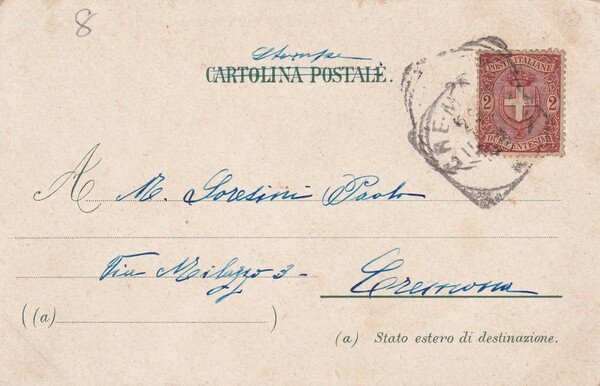 8
Stampe
CARTOLINA POSTALE.
POSTE ITALIANE
2 2
DUE CENTESIMI
A M. Soresini Paolo
Via Milazzo 3-
Cremona
((a) )
(a) Stato estero di destinazione.